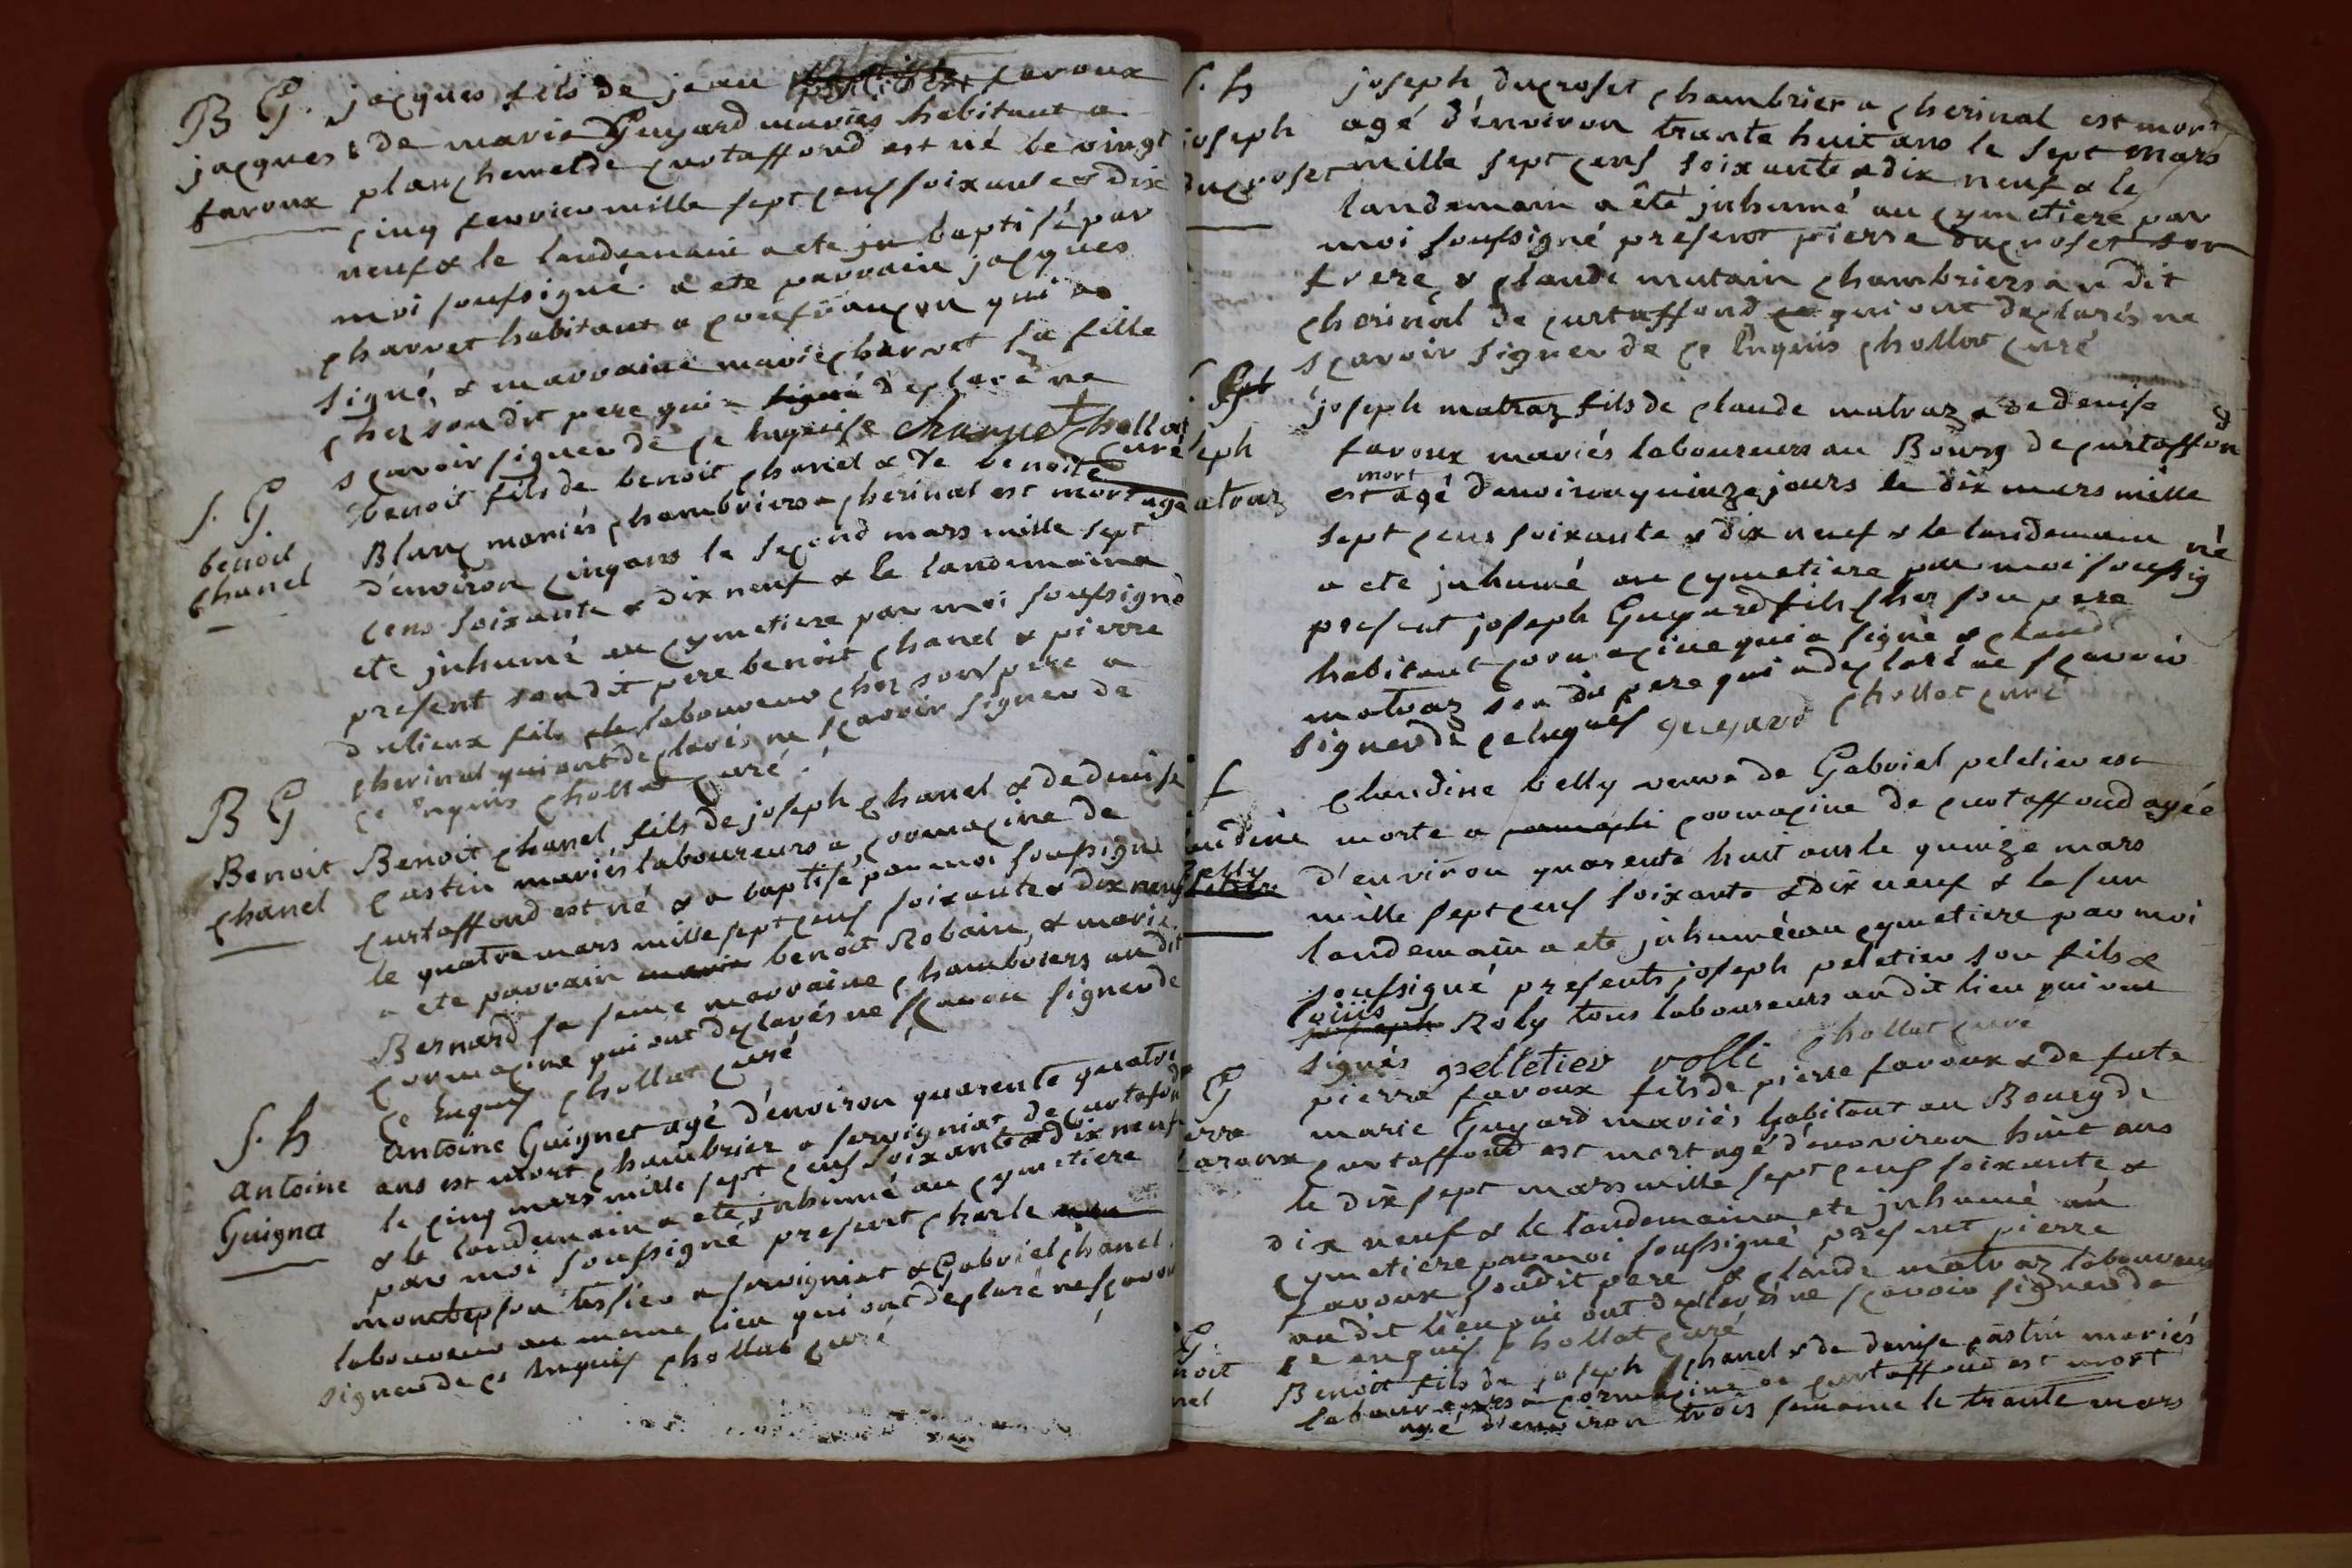 B G. jacques fils de jean favoux
jacques & de marie Guyard mariés habitant a
favoux planchemel de curtaffond est né le vingt
cinq fevrier mille sept cens soixante & dix
neuf & le landemain a ete baptisé par
moi soussigné a ete parrain jacques
charvet habitant a confrançon qui a
signé, & marraine marie charvet sa fille
chez son dit pere qui a signé declaré ne
scavoir signer de ce enquise charvet chollat
curé
S. G. benoit fils de benoit chanel & de benoite
benoit Blanc mariés chambriers a cherinal est mort agé
chanel d'environ cinq ans le second mars mille sept
cens soixante & dix neuf & le landemain a
ete inhumé au cymetiere par moi soussigné
present son dit pere benoit chanel & pierre
fils laboureur chez son pere a
cherinal qui ont declarés ne scavoir signer de
ce enquis chollat curé
B G
Benoit Benoit chanel fils de joseph chanel & de denise
chanel castin mariés laboureurs a cormacine de
curtaffond est né & a baptisé par moi soussigné
le quatre mars mille sept cens soixante & dix neuf
a ete parrain benoit Robain & marie
Bernard sa feme marraine chambriers au dit
cormacine qui ont declarés ne scavoir signer de
ce enquis chollat curé
S. h antoine Guignet agé d'environ quarente quatre
antoine ans est mort chambrier a servigniat de curtafon
Guignet le cinq mars mille sept cens soixante & dix neuf
& le landemain a ete inhumé au cymetiere
par moi soussigné present charle
tissier a servigniat & Gabriel chanel
laboureur au meme lieu qui ont declaré ne scavoir
signer de ce enquis chollat curé
S. h joseph ducroset chambrier a cherinal est mort
joseph agé d'environ trante huit ans le sept mars
ducroset mille sept cens soixante & dix neuf & le
landemain a été inhumé au cymetiere par
moi soussigné present pierre ducroset son
frere & claude mutain chambriers au dit
cherinal de curtaffond qui ont declarés ne
scavoir signer de ce enquis chollat curé
joseph matraz fils de claude matraz & de denise
seph favoux mariés laboureurs au Bourg de curtaffond
atraz est mort agé d'environ quinze jours le dix mars mille
sept cens soixante & dix neuf & le landemain
a ete inhumé au cymetiere par moi soussigné
present joseph Guyard fils chez son pere
habitant cormacine qui a signé & claude
matraz son dit pere qui a declaré ne scavoir
signer de ce enquis guyard chollat curé
S claudine belly veuve de Gabriel peletier est
audine morte a cormacine de curtaffond agée
belly d'environ quarente huit ans le quinze mars
mille sept cens soixante & dix neuf & le sur
landemain a ete inhumée au cymetiere par moi
soussigné presents joseph peletier son fils &
loüis Roly tous laboureurs au dit lieu qui ont
signés pelletier rolli chollat curé
G pierre favoux fils de pierre favoux & de fute
erre marie Guyard mariés habitant au Bourg de
faroux curtaffond est mort agé d'environ huit ans
le dix sept mars mille sept cens soixante &
dix neuf & le landemain a ete inhumé au
cymetiere par moi soussigné present pierre
favoux sondit pere & claude matraz laboureurs
au dit lieu qui ont declarés ne scavoir signer de
ce enquis chollat curé
G.
noit Benoit fils de joseph chanel & de denise castin mariés
nel laboureurs a cormacine de curtaffond est mort
agé d'environ trois semaine le trante mars